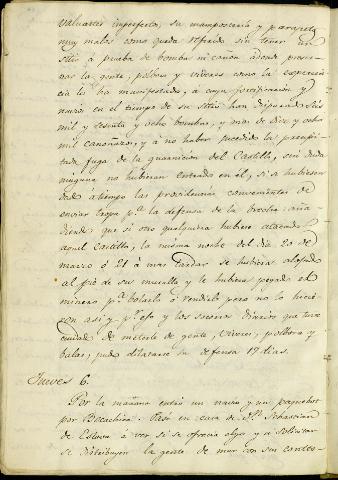 valuartes imperfecto, su mamposteria y parapeto
muy malos como queda referido sin tener un
sitio á prueba de bomba ni cañon adonde preser-
var la gente, polvora y viveres como la experien-
cia lo ha manifestado, á cuya fortificacion y
muro en el tiempo de su sitio han disparado Seis
mil y sesenta y ocho bombas, y mas de diez y ocho
mil cañonazos, y á no haber sucedido la precipi-
tada fuga de la guarnicion del Castillo, sin duda
ninguna no hubieran entrado en él, si se hubiesen
dado á tiempo las providencias convenientes de
enviar tropa p.ª la defensa de la brecha aña-
diendo que si otro qualquiera hubiera atacado
aquel Castillo, la misma noche del dia 20 de
marzo ó 21 á mas tardar se hubiera alojado
al pié de sus muralla y le hubiera pegado el
minero p.ª bolarlo ó rendirlo pero no lo hicie-
ron asi y p.r eso y los socorros diarios que tuvo
ciudad de meterle de gente, viveres, polbora y
balas, pudo dilatarse su defensa 17 dias.
Jueves 6.
Por la mañana entró un navio y un paquebot
por Bocachica. Pasé en casa de D.n Sebastian
de Eslava á ver si se ofrecia algo y á solicitar
se distribuyese la gente de mar con sus contra-